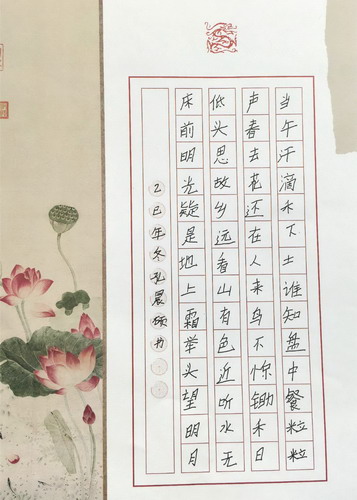 床前明光疑是地上霜举头望明月
低头思故乡远看山有色近听水无
声春去花还在人来鸟不惊锄禾日
当午汗滴禾下土谁知盘中餐粒粒
乙巳年冬孔晨硕书